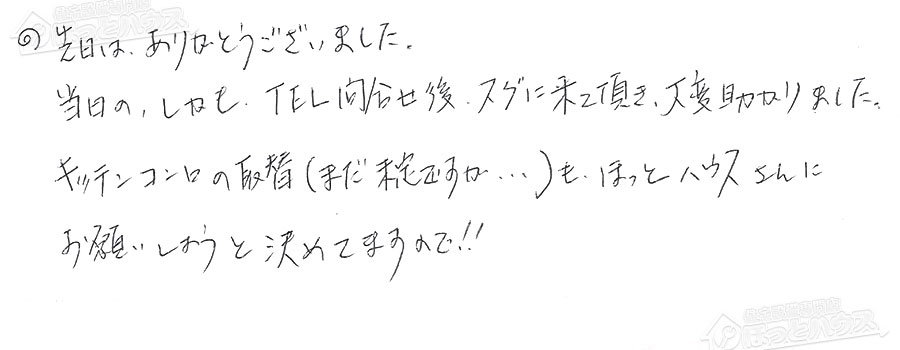 住宅設備専門店
ほっとハウス
の 先日は、ありがとうございました。
当日の、しかも、TEL問合せ後、スグに来て頂き、大変助かりました。
キッチンコンロの取替(まだ未定ですが…)も、ほっとハウスさんに
お願いしようと決めてますので!!
住宅設備専門店
ほっとハウス